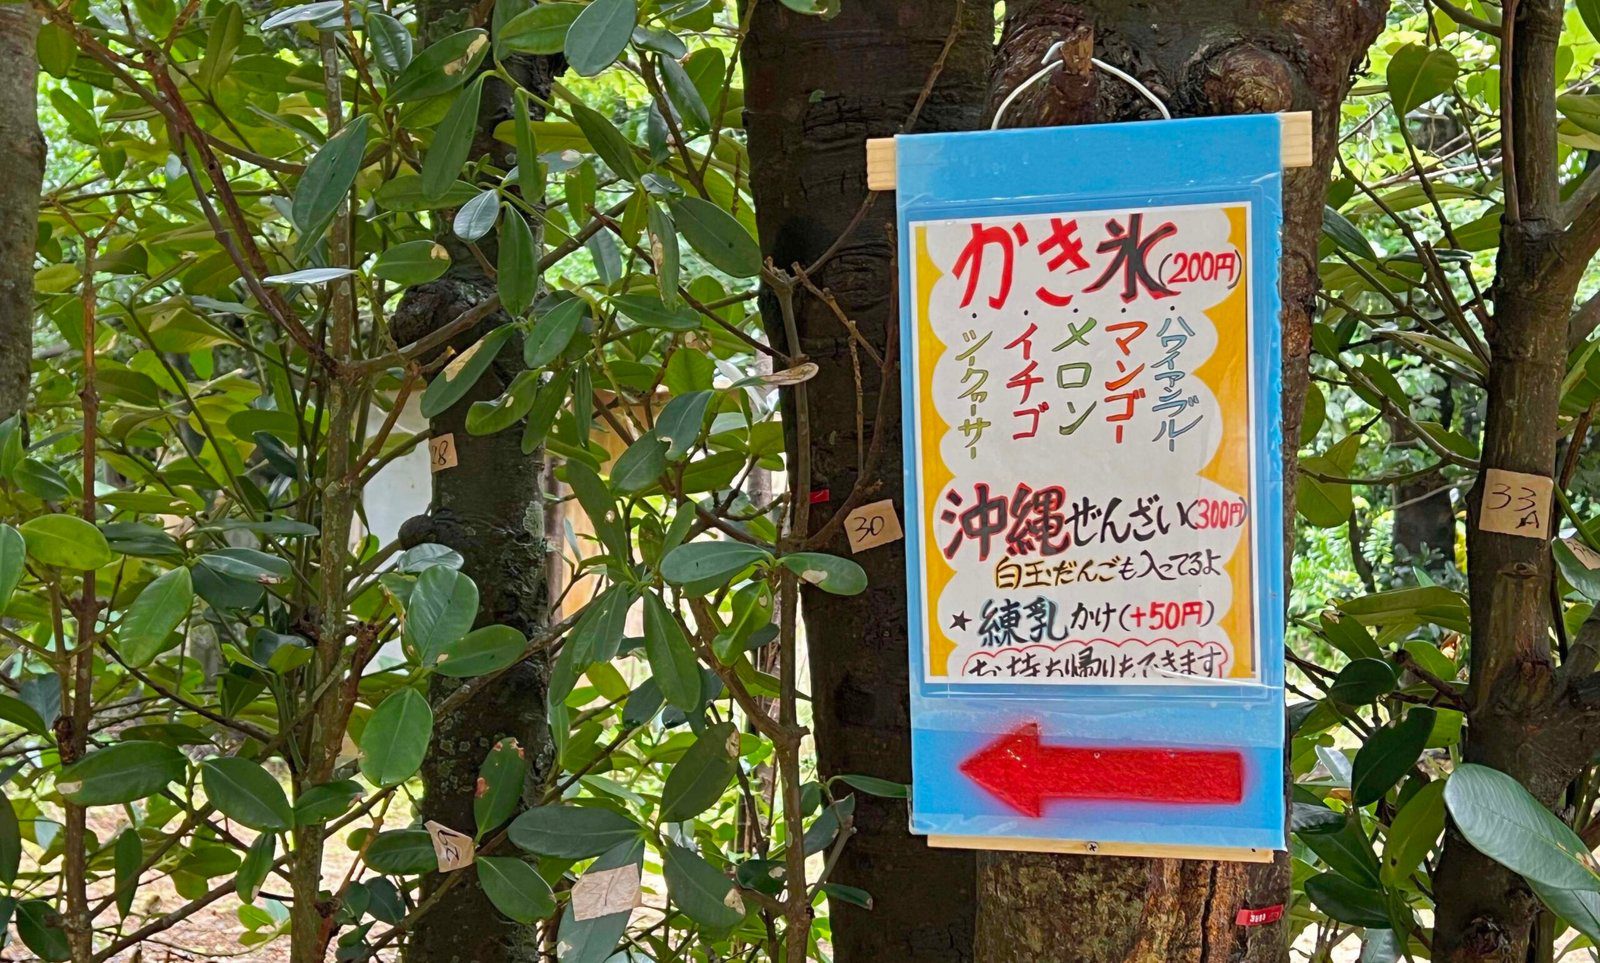 かき氷(200円)
・ハワイアンブルー
・マンゴー
・メロン
・イチゴ
・シークヮーサー
沖縄ぜんざい(300円)
白玉だんごも入ってるよ
★練乳かけ(+50円)
お持ち帰りもできます
28
30
33
A